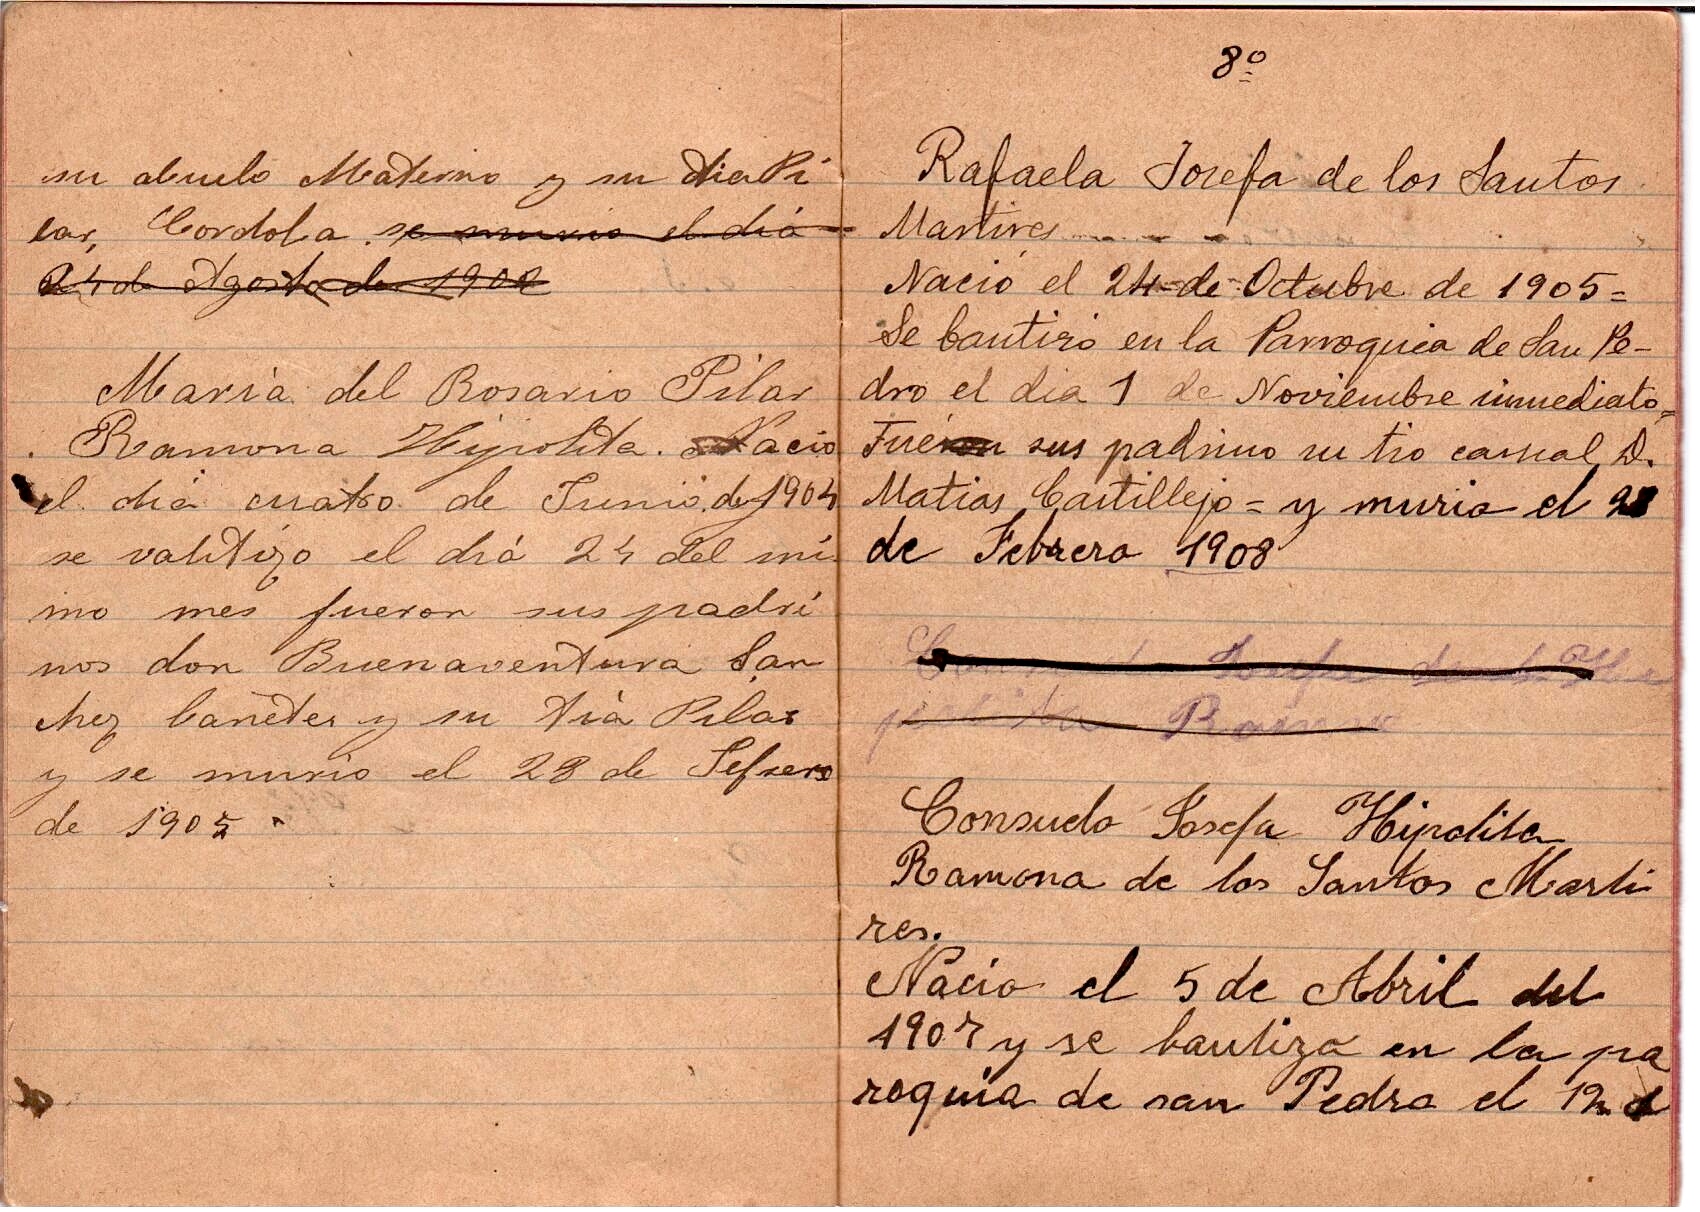 su abuelo Materno y su tia Pi
lar, Cordoba se murio el diá
24 de Agosto de 1902
Maria del Rosario Pilar
Ramona Hipolita. Nacio
el diá cuatro de Junio de 1904
se valitizo el diá 24 del mi
mo mes fueron sus padri
nos don Buenaventura San
chez Cañetes y su tiá Pilar
y se murio el 28 de Febrero
de 1905
8º
Rafaela Josefa de los Santos
Martires
Nació el 24 de Octubre de 1905=
Se bautizó en la Parroquia de San Pe-
dro el dia 1 de Noviembre inmediato=
Fueron sus padrino su tio carnal D.
Matias Castillejo = y murio el
de Febrero 1908
Josefa
Ramona
Consuelo Josefa Hipolita
Ramona de los Santos Marti
res.
Nacio el 5 de Abril del
1907 y se bautizo en la pa
roquia de san Pedro el 12